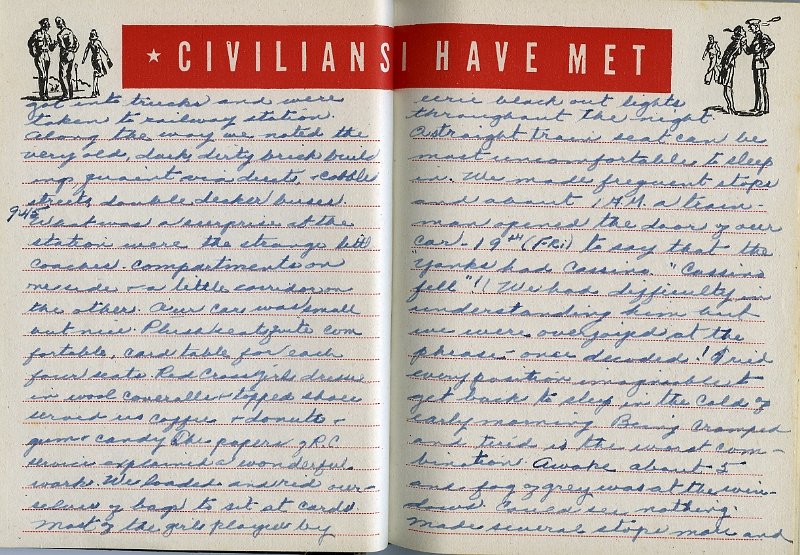 ★ CIVILIANS I HAVE MET
got into trucks and were
taken to railway station.
Along the way we noted the
very old, dark dirty brick build
ings quaint viaducts, cobble
streets, double decker buses.
9:45
What was a surprise at the
station were the strange little
coaches compartments on
one side + a little corridor on
the other. Our car was small
but nice. Plush seats, quite com
fortable, card table for each
four seats. Red Cross girls dressed
in wool coveralls + topped shoes
served us coffee + donuts +
gum + candy. The papers of R.C.
service explained a wonderful
work. We loaded and rid our-
selves of bags to sit at cards
Most of the girls played by
eerie black out lights
throughout the night.
A straight train seat can be
most uncomfortable to sleep
in. We made frequent stops
and about 1 A.M. a train-
man opened the door of our
car. 19th (Fri) to say that the
"Yanks had Cassino. "Cassino
fell"!! We had difficulty in
understanding him but
we were overjoyed at the
phrase - once decoded! Tried
every position imaginable to
get back to sleep in the cold of
early morning. Being cramped
and tired is the worst com-
bination. Awoke about 5
and fog of grey was at the win-
dows. Could see nothing.
Made several stops more and